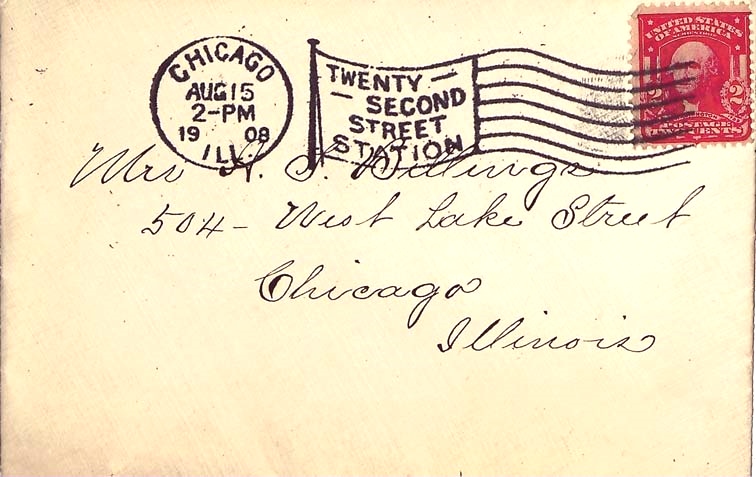 CHICAGO
AUG 15
2-PM
1908
ILL.
TWENTY —
— SECOND
STREET
STATION
UNITED STATES
OF AMERICA
2 2
POSTAGE
TWO CENTS
Mrs H. S. Billings
504 - West Lake Street
Chicago
Illinois